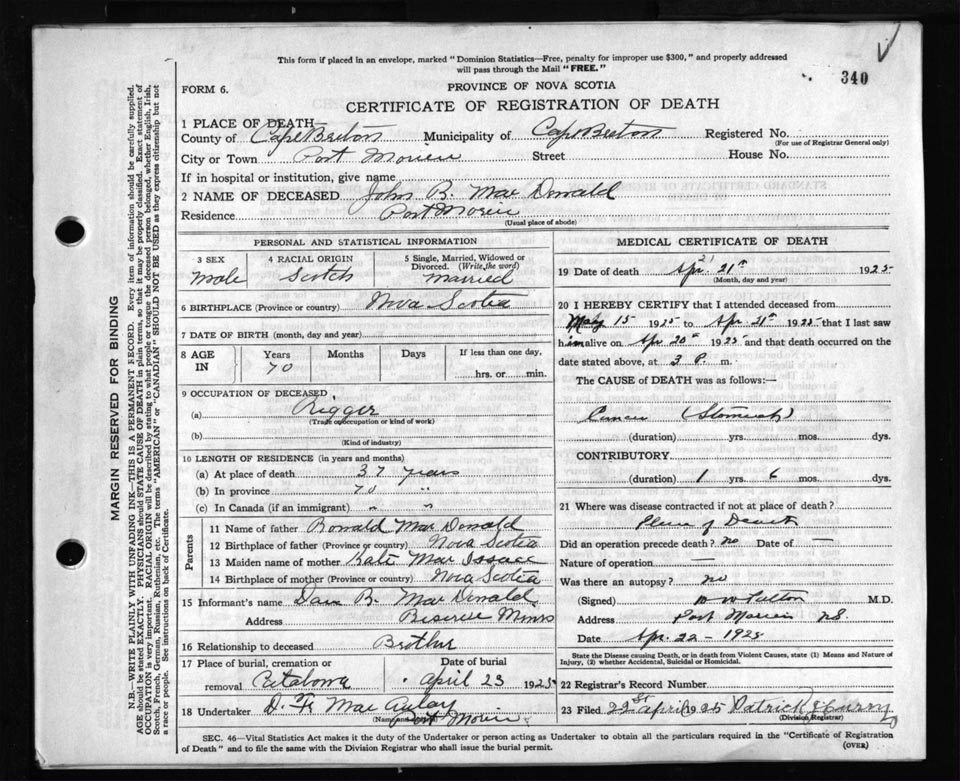 This form if placed in an envelope, marked "Dominion Statistics—Free, penalty for improper use $300," and properly addressed
will pass through the Mail "FREE."
340
FORM 6.
PROVINCE OF NOVA SCOTIA
CERTIFICATE OF REGISTRATION OF DEATH
1 PLACE OF DEATH—
County of Cape Breton Municipality of Cape Breton Registered No.
(For use of Registrar General only)
City or Town Port Morien Street House No.
If in hospital or institution, give name
2 NAME OF DECEASED John B. Mac Donald
Residence Port Morien
(Usual place of abode)
PERSONAL AND STATISTICAL INFORMATION
3 SEX Male
4 RACIAL ORIGIN Scotch
5 Single, Married, Widowed or
Divorced. (Write the word)
Married
6 BIRTHPLACE (Province or country) Nova Scotia
7 DATE OF BIRTH (month, day and year)
8 AGE IN Years 70 Months Days If less than one day,
hrs. or min.
9 OCCUPATION OF DECEASED
(a) Rigger
(Trade occupation or kind of work)
(b)
(Kind of industry)
10 LENGTH OF RESIDENCE (in years and months)
(a) At place of death 37 years
(b) In province 70 "
(c) In Canada (if an immigrant) " "
Parents
11 Name of father Ronald Mac Donald
12 Birthplace of father (Province or country) Nova Scotia
13 Maiden name of mother Kate Mac Isaac
14 Birthplace of mother (Province or country) Nova Scotia
15 Informant's name Dan B. Mac Donald
Address Reserve Mines
16 Relationship to deceased Brother
17 Place of burial, cremation or Date of burial
removal Catalone April 23 1925
18 Undertaker D. Mac Aulay
Port Morien
MEDICAL CERTIFICATE OF DEATH
19 Date of death Apr. 21st 1925
(Month, day and year)
20 I HEREBY CERTIFY that I attended deceased from
May 15 1925 to Apr 21st 1925 that I last saw
him alive on Apr 20th 1925 and that death occurred on the
date stated above, at 3 P. m.
The CAUSE of DEATH was as follows:—
Cancer (Stomach)
(duration) yrs. mos. dys.
CONTRIBUTORY
(duration) 1 yrs. 6 mos. dys.
21 Where was disease contracted if not at place of death?
Place of Death
Did an operation precede death? no Date of —
Nature of operation —
Was there an autopsy? no
(Signed) M.D.
Address Port Morien N.S.
Date Apr. 22 - 1925
State the Disease causing Death, or in death from Violent Causes, state (1) Means and Nature of
Injury, (2) whether Accidental, Suicidal or Homicidal.
22 Registrar's Record Number
23 Filed 22st April 1925 Patrick J Curry
(Division Registrar)
SEC. 46—Vital Statistics Act makes it the duty of the Undertaker or person acting as Undertaker to obtain all the particulars required in the "Certificate of Registration
of Death" and to file the same with the Division Registrar who shall issue the burial permit. (OVER)
MARGIN RESERVED FOR BINDING
N.B.—WRITE PLAINLY WITH UNFADING INK—THIS IS A PERMANENT RECORD. Every item of information should be carefully supplied.
AGE should be stated EXACTLY. PHYSICIANS should STATE CAUSE OF DEATH in plain terms, so that it may be properly classified. Exact statement of
OCCUPATION is very important. RACIAL ORIGIN will be described by stating to what people or tongue the deceased person belonged, whether English, Irish,
Scotch, French, German, Russian, Ruthenian, etc. The terms "AMERICAN" or "CANADIAN" SHOULD NOT BE USED as they express citizenship but not
a race or people. See instructions on back of Certificate.